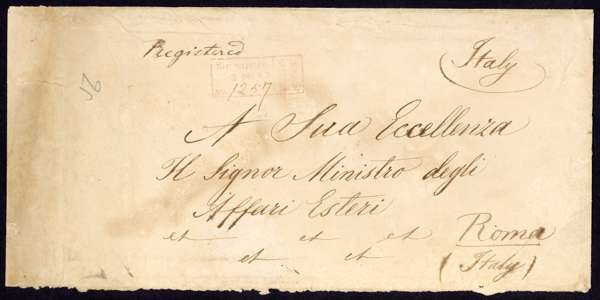 Registered
Italy
1257
A Sua Eccellenza
Il Signor Ministro degli
Affari Esteri
et et et Roma
et et (Italy)